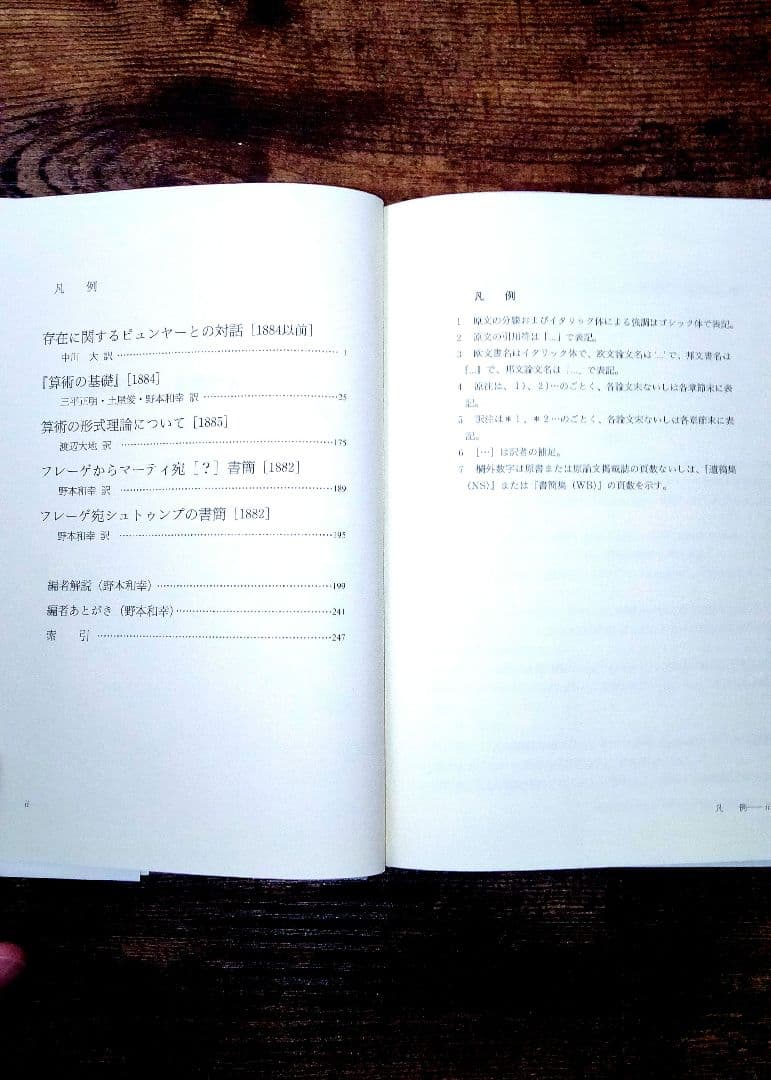 凡 例
存在に関するピュンヤーとの対話［1884以前］
中川 大 訳 …… 1
『算術の基礎』［1884］
三平正明・土屋俊・野本和幸 訳 …… 25
算術の形式理論について［1885］
渡辺大地 訳 …… 175
フレーゲからマーティ宛［？］書簡［1882］
野本和幸 訳 …… 189
フレーゲ宛シュトゥンプの書簡［1882］
野本和幸 訳 …… 195
編者解説（野本和幸）…… 199
編者あとがき（野本和幸）…… 241
索 引 …… 247
ii
凡 例
1 原文の分綴およびイタリック体による強調はゴシック体で表記。
2 原文の引用符は「...」で表記。
3 欧文書名はイタリック体で、欧文論文名は‘...’で、邦文書名は
『...』で、邦文論文名は「...」で表記。
4 原注は、1）、2）…のごとく、各論文末ないしは各章節末に表
記。
5 訳注は＊1、＊2…のごとく、各論文末ないしは各章節末に表
記。
6 ［…］は訳者の補足。
7 欄外数字は原書または原論文掲載誌の頁数ないしは、『遺稿集
（NS）』または『書簡集（WB）』の頁数を示す。
凡 例